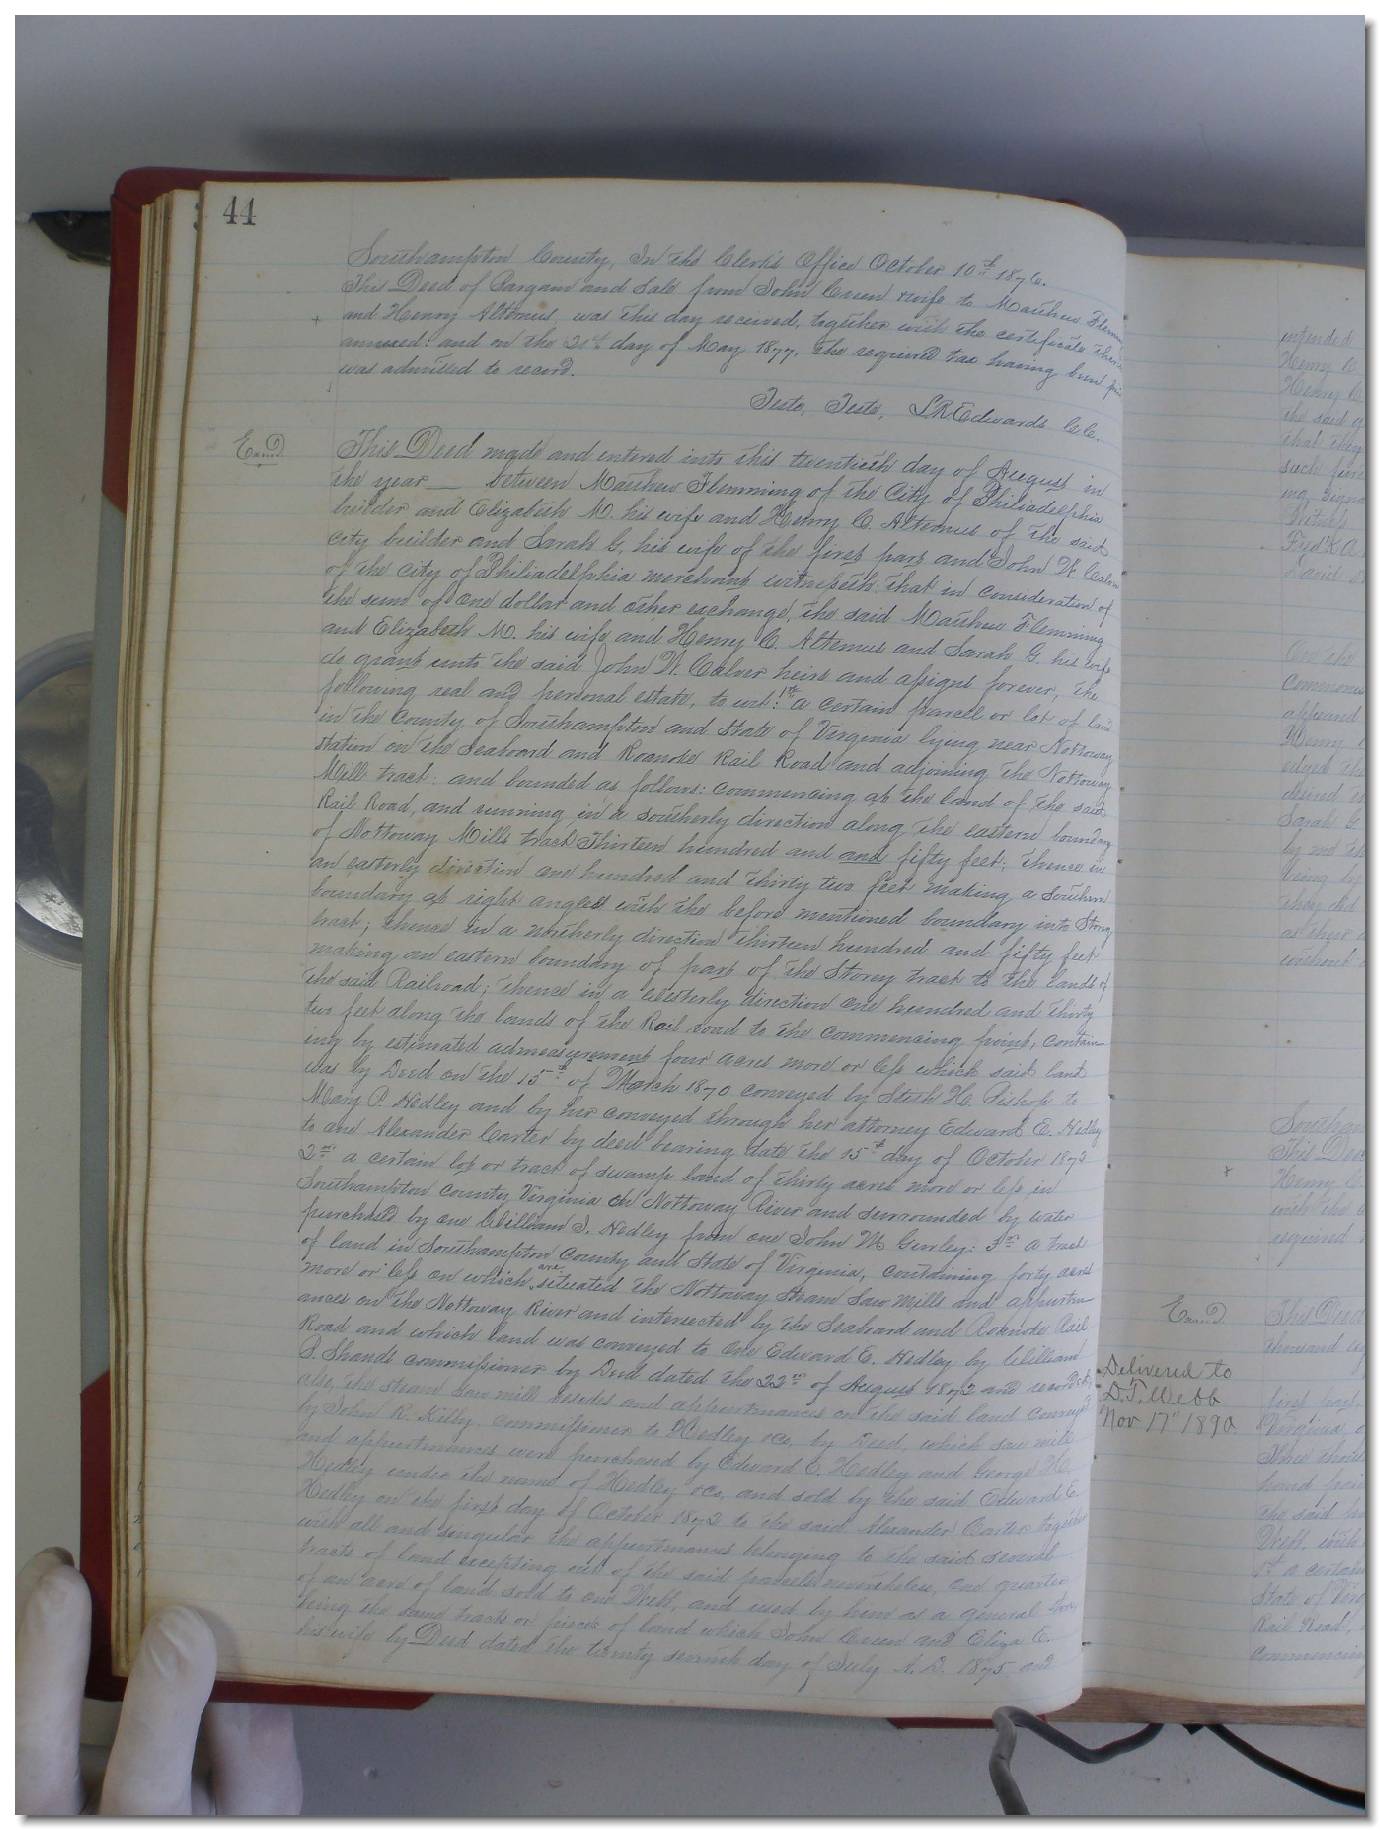 44
Southampton County, In the Clerk's Office October 10th 1876.
This Deed of Bargain and Sale from John Creen & wife to Matthew Flem
and Henry Altemus, was this day received, together with the certificate there
annexed: and on the 21st day of May 1877. The required tax having been pai
was admitted to record.
Teste, Teste, L R Edwards C.C.
Exmd
This Deed made and entered into this twentieth day of August in
the year __ between Matthew Flemming of the City of Philiadelphia
builder and Elizabeth M. his wife and Henry C. Altemus of the said
city builder and Sarah G. his wife of the first part and John W. Calver
of the city of Philiadelphia merchant witnesseth that in consideration of
the sum of one dollar and other exchange, the said Matthew Flemming
and Elizabeth M. his wife and Henry C. Altemus and Sarah G. his wife
do grant unto the said John W. Calver heirs and assigns forever, the
following real and personal estate, to wit: 1st a certain parcel or lot of land
in the County of Southampton and State of Virginia lying near Nottoway
station on the Seaboard and Roanoke Rail Road and adjoining the Nottoway
Mill tract: and bounded as follows: commencing at the land of the said
Rail Road, and running in a southerly direction along the eastern boundary
of Nottoway Mills tract Thirteen hundred and and fifty feet; thence in
an easterly direction one hundred and thirty two feet making a southern
boundary at right angles with the before mentioned boundary into Story
tract; thence in a northerly direction thirteen hundred and fifty feet
making an eastern boundary of part of the Storey tract to the lands of
the said Railroad; thence in a Westerly direction one hundred and thirty
two feet along the lands of the Rail road to the commencing point, contain
ing by estimated admeasurement four acres more or less which said land
was by Deed on the 15th of March 1870 conveyed by Steth H. Bishop to
Mary P. Hedley and by her conveyed through her attorney Edward E. Hedley
to one Alexander Carter by deed bearing date the 15th day of October 1873
2nd a certain lot or tract of swamp land of thirty acres more or less in
Southampton County Virginia on Nottoway River and surrounded by water
purchased by one William S. Hedley from one John M Gurley: 3rd a tract
of land in Southampton County and State of Virginia, containing forty acres
more or less on which are situated the Nottoway Steam Saw Mills and appurten
ances on the Nottoway River and intersected by the Seaboard and Roanoke Rail
Road and which land was conveyed to one Edward E. Hedley by William
B. Shands commissioner by Deed dated the 22nd of August 1872 and recorded,
also, the steam saw mill besides and appurtenances on the said land conveyed
by John R. Kilby commissioner to Hedley & Co, by Deed, which saw mill
and appurtenances were purchased by Edward E. Hedley and George H.
Hedley under the name of Hedley & Co, and sold by the said Edward E.
Hedley on the first day of October 1873 to the said Alexander Carter together
with all and singular the appurtenances belonging to the said several
tracts of land excepting out of the said parcels nevertheless, one quarter
of an acre of land sold to one Webb, and used by him as a general store
being the same tracts or pieces of land which John Creen and Eliza C.
his wife by Deed dated the twenty seventh day of July A. D. 1875 and
intended
Henry C.
Henry
the said
that they
such
ing signa
Witness
Fred'k A.
David
On the
commonw
appeared
Henry
edged
desired
Sarah G.
by me
being by
they did
as their
without
Southam
This Deed
Henry C
with the
required
Exmd
This Deed
thousand
Delivered to
D.T. Webb
Nov 17th 1890
first part
Virginia
Three thous
hand paid
the said
Webb, with
1st a certain
State of Virg
Rail Road,
commencing